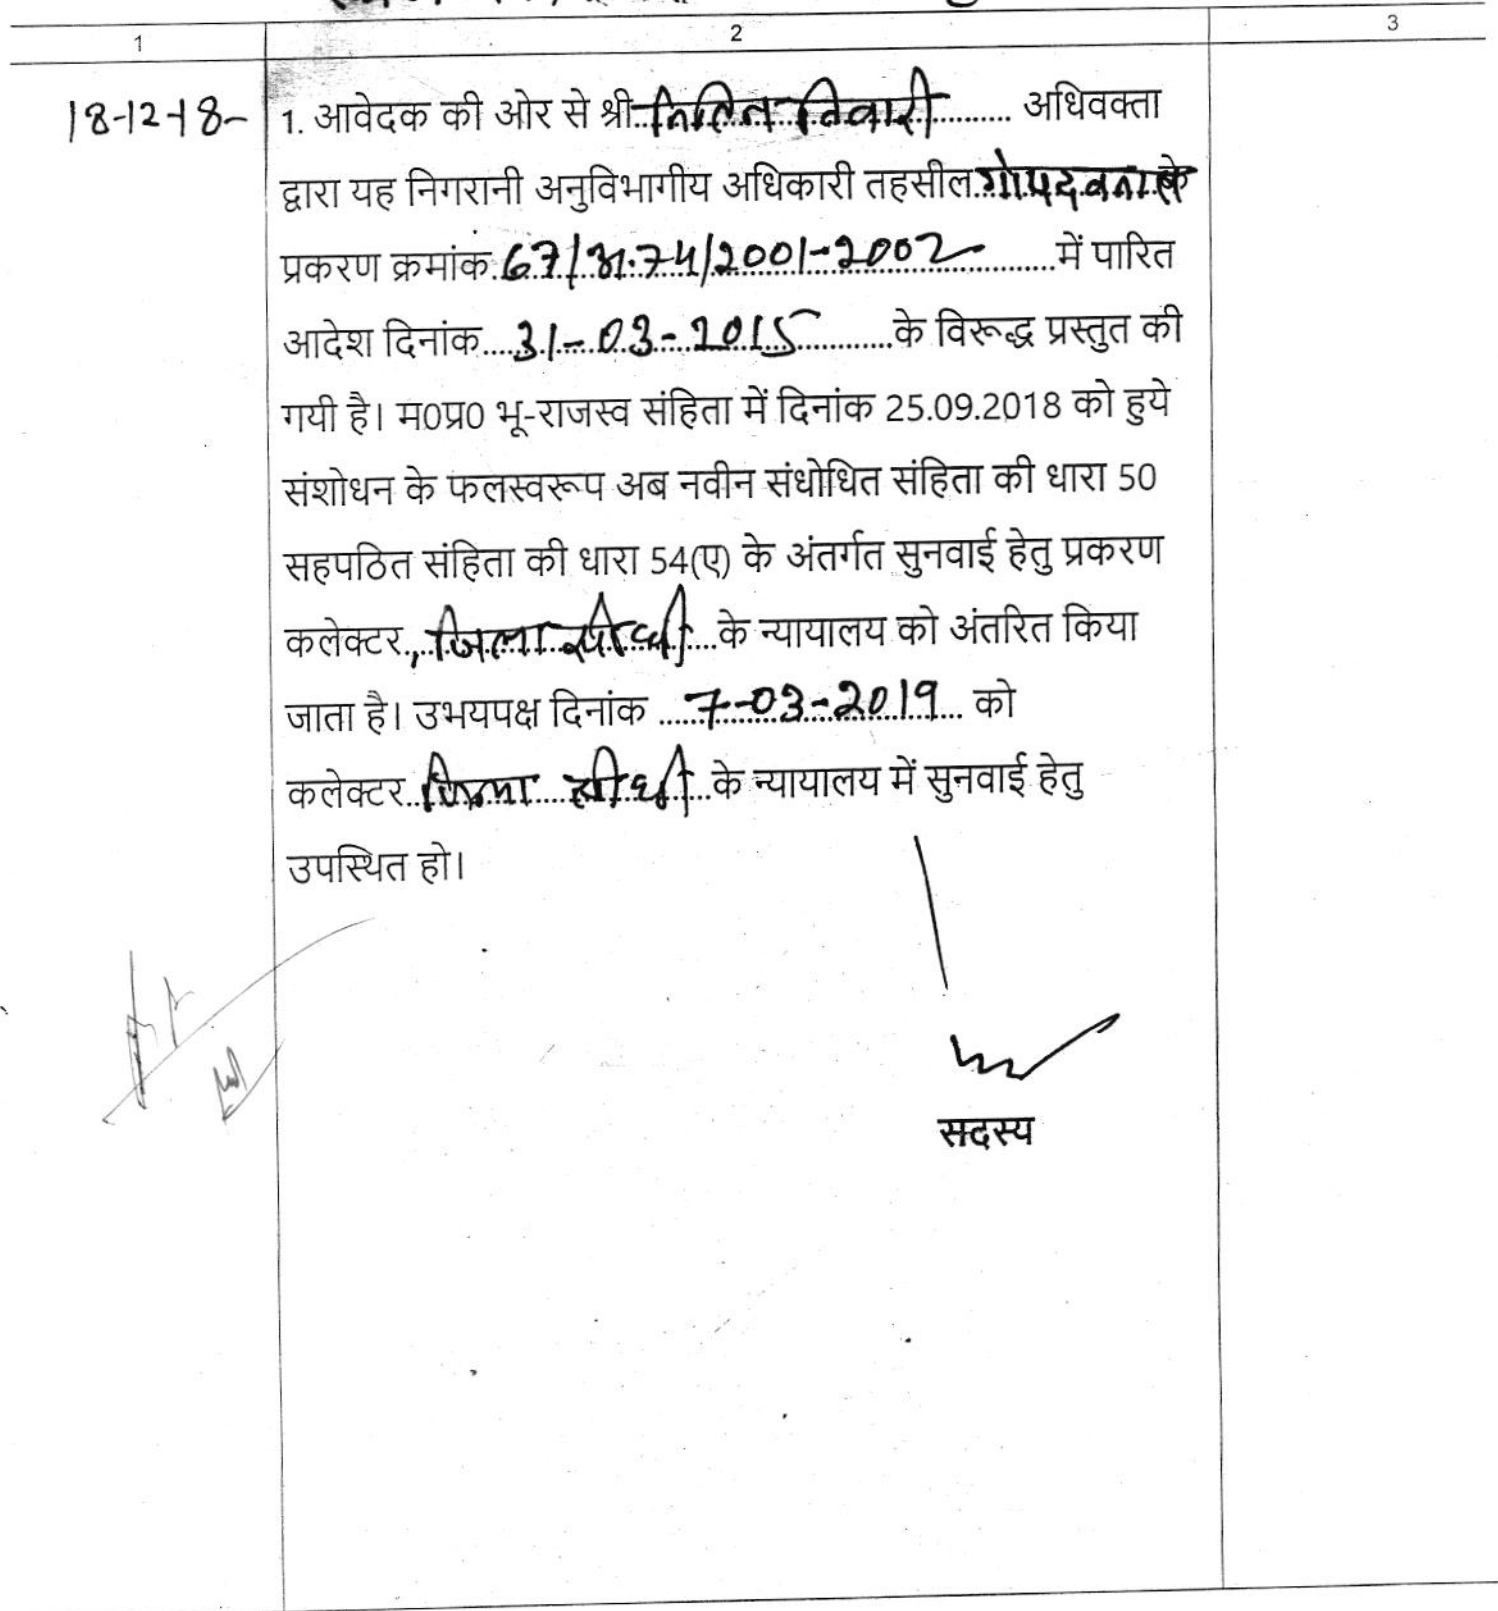 1 2 3
18-12-18- 1. आवेदक की ओर से श्री नितिन तिवारी अधिवक्ता
द्वारा यह निगरानी अनुविभागीय अधिकारी तहसील गोपदवनास के
प्रकरण क्रमांक 67/अ-74/2001-2002 में पारित
आदेश दिनांक 31-03-2015 के विरूद्ध प्रस्तुत की
गयी है। म0प्र0 भू-राजस्व संहिता में दिनांक 25.09.2018 को हुये
संशोधन के फलस्वरूप अब नवीन संधोधित संहिता की धारा 50
सहपठित संहिता की धारा 54(ए) के अंतर्गत सुनवाई हेतु प्रकरण
कलेक्टर, जिला सीधी के न्यायालय को अंतरित किया
जाता है। उभयपक्ष दिनांक 7-03-2019 को
कलेक्टर जिला सीधी के न्यायालय में सुनवाई हेतु
उपस्थित हो।
सदस्य